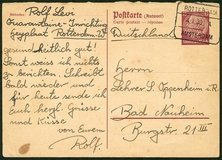 Rolf Levi
Quarantaine-Inrichting
Zeeplaat Rotterdam-Z.
gesundheitlich gut!
Sonst weiss ich nichts
zu berichten. Schreibt
bald wieder und
sind für heute ich
auch herzl. Grüsse
und Küsse
von Eurem
Rolf.
Postkarte (Antwort)
Carte postale
Deutschland
ROTTERDAM
AMSTERDAM
Herrn
Lehrer S. Oppenheim
Bad Nauheim
Burgstr.